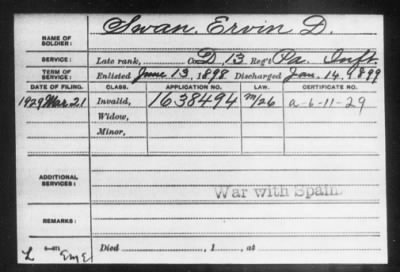 NAME OF SOLDIER: Swan, Ervin D.
SERVICE: Late rank, Co. D, 13 Reg't Pa. Inft.
TERM OF SERVICE: Enlisted June 13, 1898 Discharged Jan. 14, 1899
DATE OF FILING. CLASS. APPLICATION NO. LAW. CERTIFICATE NO.
1929 Mar. 21 Invalid, 1638494 m/26 a-6-11-29
Widow,
Minor,
ADDITIONAL SERVICES:
War with Spain.
REMARKS:
L EmE Died , 1 , at